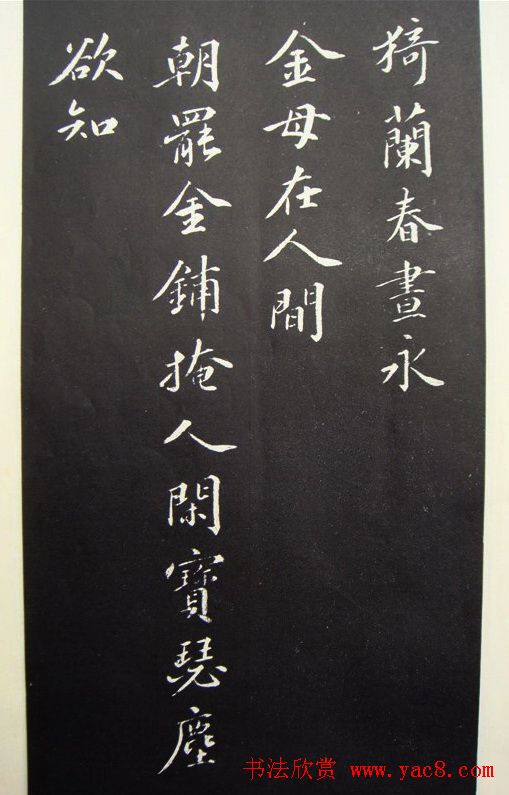 猗蘭春晝永
金母在人間
朝罷金鋪掩人閑寶瑟塵
欲知
书法欣赏 www.yac8.com